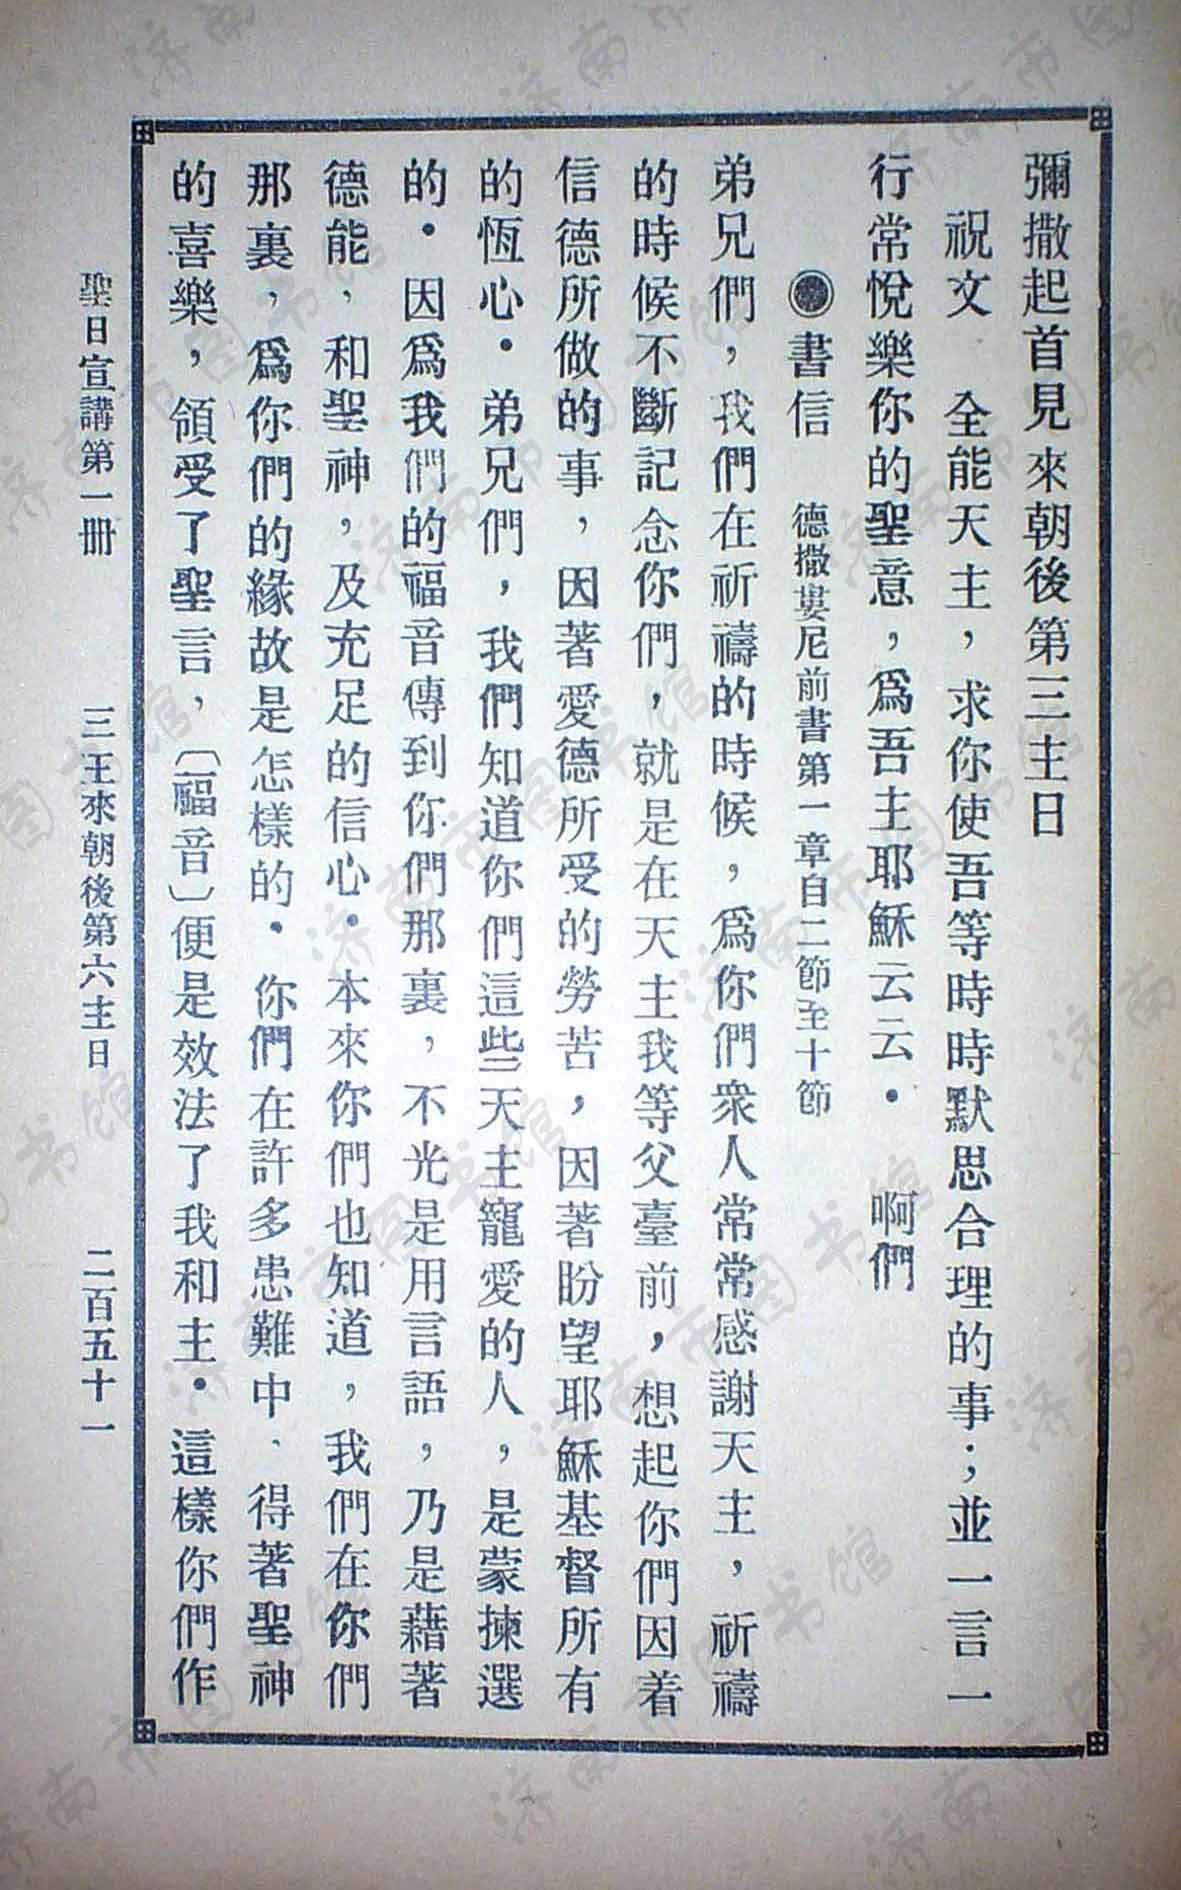 彌撒起首見來朝後第三主日
祝文　全能天主，求你使吾等時時默思合理的事；並一言一
行常悅樂你的聖意，爲吾主耶穌云云．　啊們
◉書信　德撒婁尼前書第一章自二節至十節
弟兄們，我們在祈禱的時候，爲你們衆人常常感謝天主，祈禱
的時候不斷記念你們，就是在天主我等父臺前，想起你們因着
信德所做的事，因著愛德所受的勞苦，因著盼望耶穌基督所有
的恆心．弟兄們，我們知道你們這些天主寵愛的人，是蒙揀選
的．因爲我們的福音傳到你們那裏，不光是用言語，乃是藉著
德能，和聖神，及充足的信心．本來你們也知道，我們在你們
那裏，爲你們的緣故是怎樣的．你們在許多患難中、得著聖神
的喜樂，領受了聖言，〔福音〕便是效法了我和主．這樣你們作
聖日宣講第一冊　三王來朝後第六主日　二百五十一
济南市图书馆